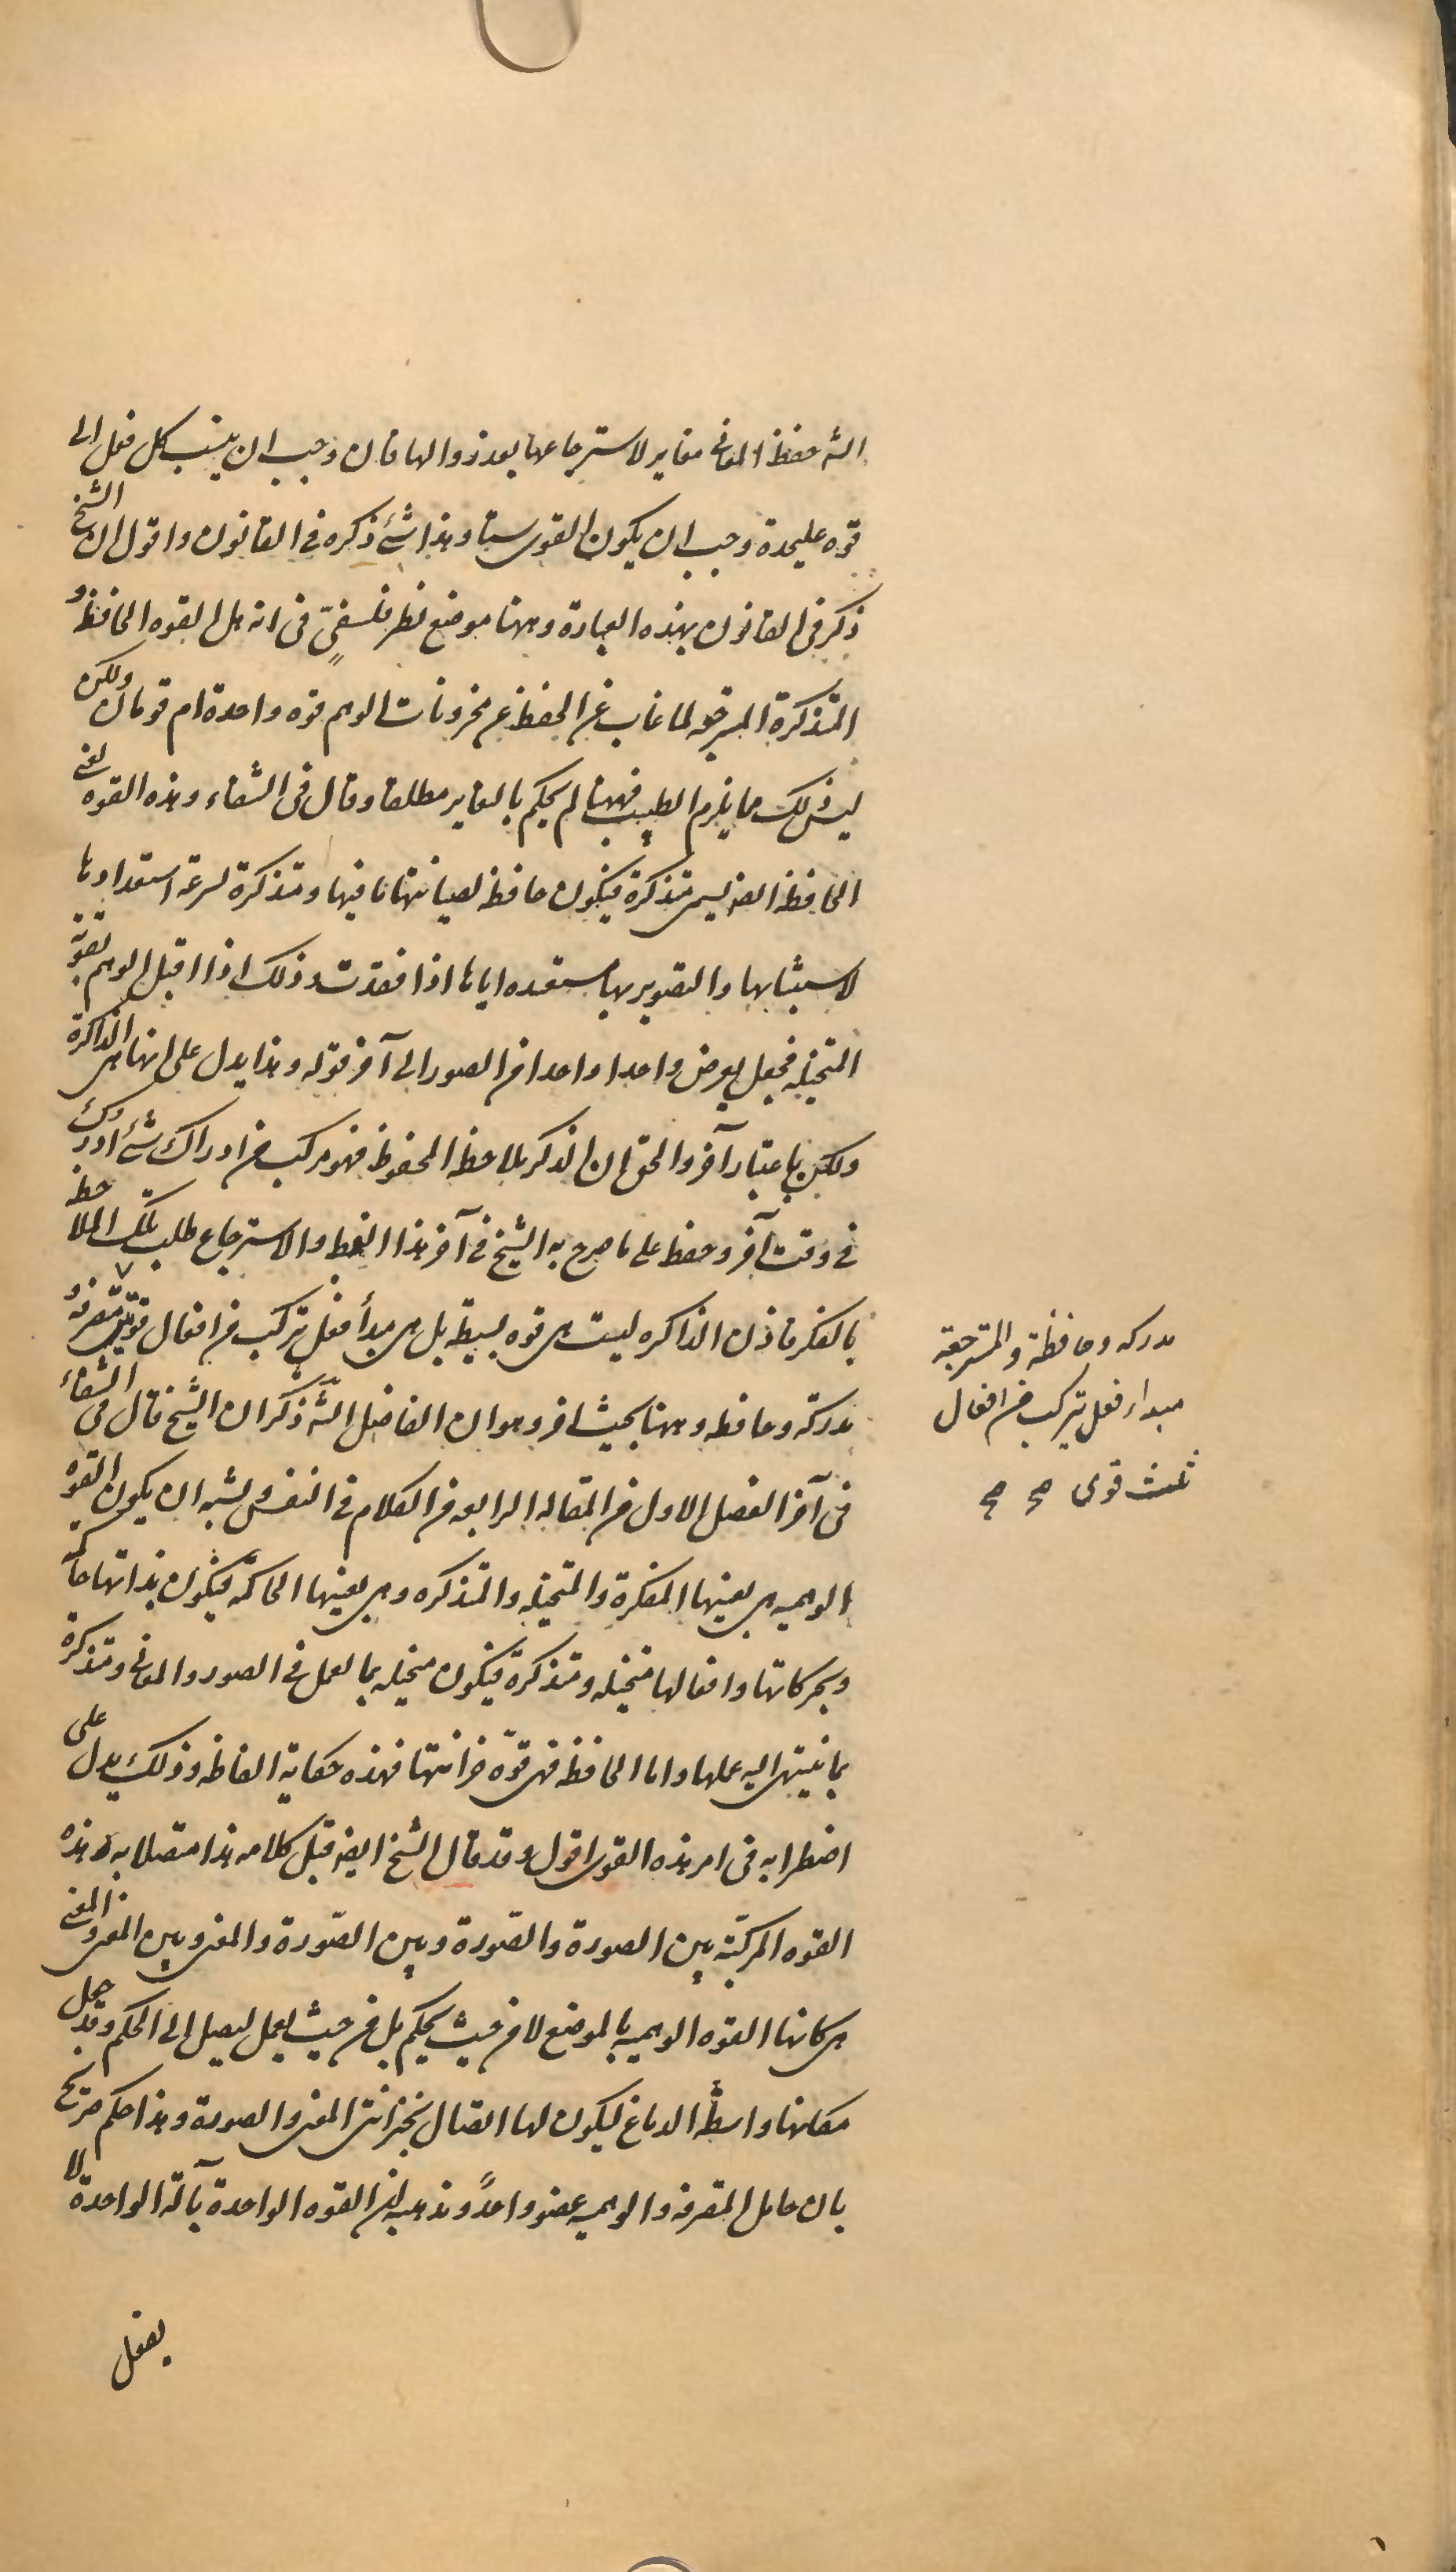 الشه حفظ المعانى مغاير لاسترجاعها بعد زوالها فان وجب ان ينسب كل فعل الى
قوه عليحدة وجب ان يكون القوى ستا وهذا شئ ذكره فى القانون واقول ان الشيخ
ذكر فى القانون بهذه العبارة وههنا موضع نظر فلسفىّ فى انه هل القوه الحافظه و
المتذكرة المسترجعه لما غاب عن الحفظ من مخزونات الوهم قوه واحدة ام قوتان ولكن
ليس ذلك مما يلزم الطبيب فههنا لم يحكم بالتغاير مطلقا وقال فى الشفاء وهذه القوه يعنى
الحافظه ايضا يسمى متذكرة فيكون حافظه لصيانتها ما فيها ومتذكرة لسرعة استعدادها
لاستثباتها والتصوير بها مستعيده اياها اذا فقدت وذلك اذا اقبل الوهم بقوته
المتخيله فجعل يعرض واحدا واحدا من الصور الى آخر قوله وهذا يدل على انها هى الذاكرة
ولكن باعتبار آخر والحق ان الذكر ملاحظه المحفوظ فهو مركب من ادراك شئ ادرك
فى وقت آخر وحفظ على ما صرح به الشيخ فى آخر هذا النمط والاسترجاع طلب تلك الملاحظه
بالفكر فاذن الذاكره ليست هى قوه بسيطة بل هى مبدأ فعل يتركب من افعال قوتين متصرفه و
مدركة وحافظه وههنا بحث اخر وهو ان الفاضل الشه ذكر ان الشيخ قال فى الشفاء
فى آخر الفصل الاول من المقاله الرابعه من الكلام فى النفس يشبه ان يكون القوه
الوهميه هى بعينها المفكرة والمتخيله والمتذكره وهى بعينها الحاكمة فيكون بذاتها حاكمه
وبحركاتها وافعالها متخيله ومتذكرة فيكون متخيله بما يعمل فى الصور والمعانى ومتذكرة
بما ينتهى اليه عملها واما الحافظه فهى قوّه خزانتها فهذه حكاية الفاظه وذلك يدل على
اضطرابه فى امر هذه القوى اقول وقد قال الشيخ ايضا قبل كلامه هذا متصلا به وهذه
القوه المركبّة بين الصورة والصورة وبين الصّورة والمعنى وبين المعنى والمعنى
هى كانها القوه الوهميه بالموضع لا من حيث يحكم بل من حيث يعمل ليصل الى الحكم وقد جعل
مكانها واسطة الدماغ ليكون لها اتصال بخزانتى المعنى والصورة وهذا حكم صريح
بان حامل المتصرفه والوهميه عضو واحدً ومذهبه ان القوه الواحدة بآلة الواحدة لا
يفعل
مدركه وحافظة والمسترجعة
مبداء فعل يتركب من افعال
ثلث قوى صح صح